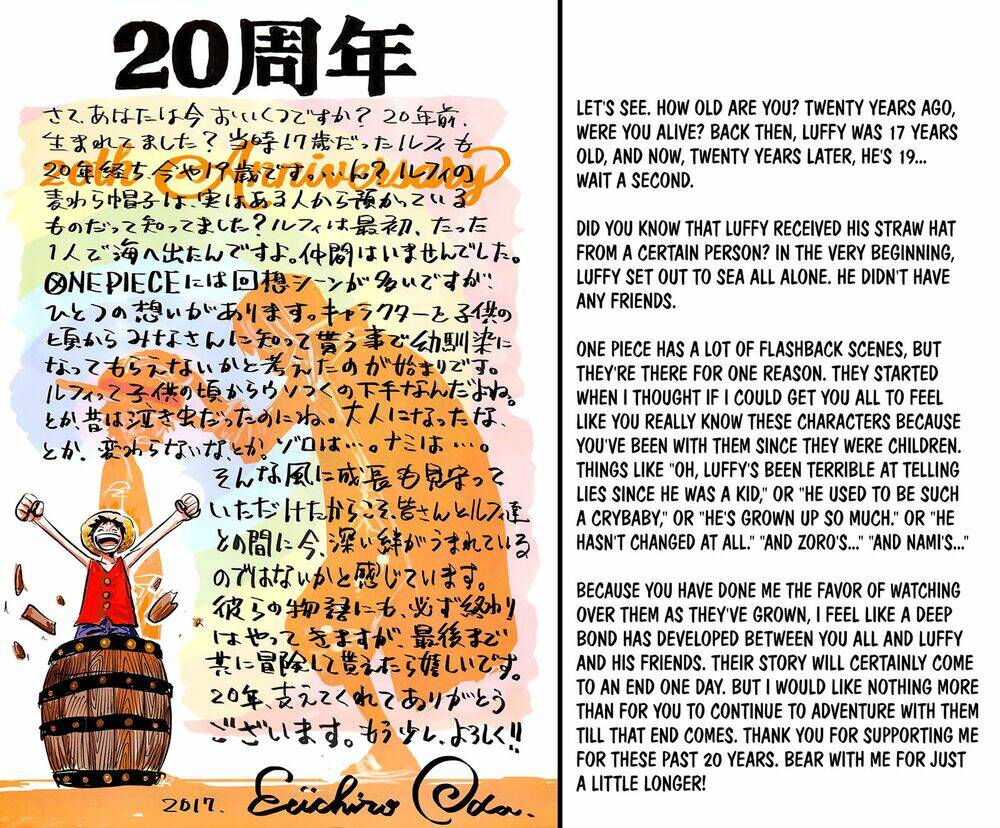 20周年
20th Anniversary
さて、あなたは今おいくつですか？20年前、
生まれてました？当時17歳だったルフィも
20年経ち今や19歳です。…ん？ルフィの
麦わら帽子は、実はある人から預かっている
ものだって知ってました？ルフィは最初、たった
1人で海へ出たんですよ。仲間はいませんでした。
ONE PIECEには回想シーンが多いですが、
ひとつの想いがあります。キャラクターを子供の
頃からみなさんに知って貰う事で幼馴染に
なってもらえないかと考えたのが始まりです。
ルフィって子供の頃からウソつくの下手なんだよね。
とか昔は泣き虫だったのにね。大人になったな、
とか、変わらないなとか。ゾロは…。ナミは…。
そんな風に成長も見守って
いただけたからこそ、皆さんとルフィ達
との間に今、深い絆がうまれている
のではないかと感じています。
彼らの物語にも、必ず終わり
はやってきますが、最後まで
共に冒険して貰えたら嬉しいです。
20年、支えてくれてありがとう
ございます。もう少し、よろしく!!
2017. Eiichiro Oda.
LET'S SEE. HOW OLD ARE YOU? TWENTY YEARS AGO,
WERE YOU ALIVE? BACK THEN, LUFFY WAS 17 YEARS
OLD, AND NOW, TWENTY YEARS LATER, HE'S 19...
WAIT A SECOND.
DID YOU KNOW THAT LUFFY RECEIVED HIS STRAW HAT
FROM A CERTAIN PERSON? IN THE VERY BEGINNING,
LUFFY SET OUT TO SEA ALL ALONE. HE DIDN'T HAVE
ANY FRIENDS.
ONE PIECE HAS A LOT OF FLASHBACK SCENES, BUT
THEY'RE THERE FOR ONE REASON. THEY STARTED
WHEN I THOUGHT IF I COULD GET YOU ALL TO FEEL
LIKE YOU REALLY KNOW THESE CHARACTERS BECAUSE
YOU'VE BEEN WITH THEM SINCE THEY WERE CHILDREN.
THINGS LIKE "OH, LUFFY'S BEEN TERRIBLE AT TELLING
LIES SINCE HE WAS A KID," OR "HE USED TO BE SUCH
A CRYBABY," OR "HE'S GROWN UP SO MUCH." OR "HE
HASN'T CHANGED AT ALL." "AND ZORO'S..." "AND NAMI'S..."
BECAUSE YOU HAVE DONE ME THE FAVOR OF WATCHING
OVER THEM AS THEY'VE GROWN, I FEEL LIKE A DEEP
BOND HAS DEVELOPED BETWEEN YOU ALL AND LUFFY
AND HIS FRIENDS. THEIR STORY WILL CERTAINLY COME
TO AN END ONE DAY. BUT I WOULD LIKE NOTHING MORE
THAN FOR YOU TO CONTINUE TO ADVENTURE WITH THEM
TILL THAT END COMES. THANK YOU FOR SUPPORTING ME
FOR THESE PAST 20 YEARS. BEAR WITH ME FOR JUST
A LITTLE LONGER!